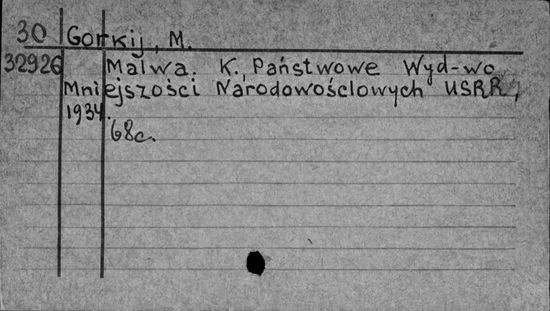 30 Gorkij, M.
32926 Malwa. K., Państwowe Wyd-wo
Mniejszości Narodowościowych USRR,
1934.
68c.